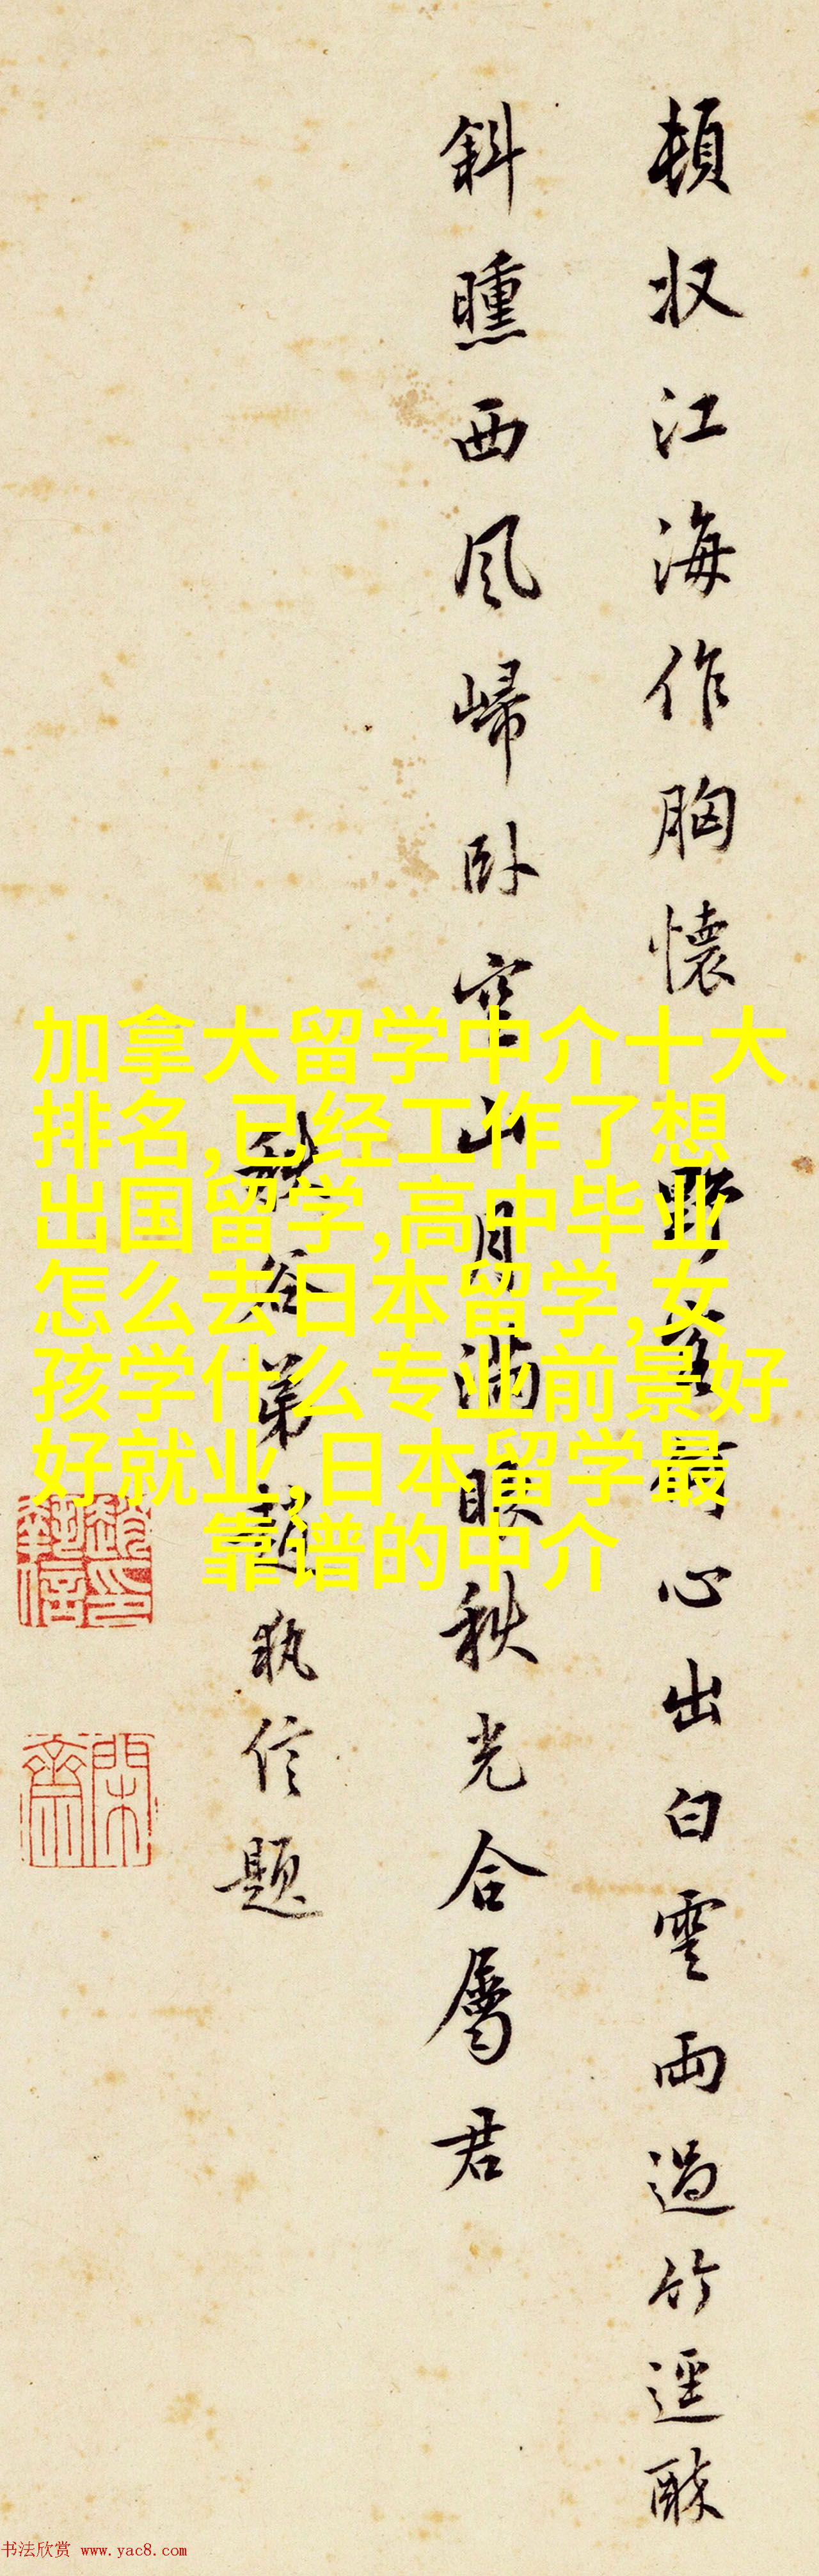 頓収江海作胸懷
心出白雲雨過竹逕酥
斜曛西风歸卧空山月滿眼秋光合屬君
谷弟趙執信題
加拿大留学中介十大
排名,已经工作了想
出国留学,高中毕业
怎么去日本留学,女
孩学什么专业前景好
好就业,日本留学最
靠谱的中介
趙執信印
閑齋
书法欣赏 www.yac8.com